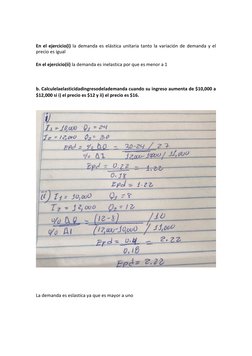 En el ejercicio(i) la demanda es elástica unitaria tanto la variación de demanda y el
precio es igual
En el ejercicio(ii) la demanda es inelastica por que es menor a 1
b. Calculelaelasticidadingresodelademanda cuando su ingreso aumenta de $10,000 a
$12,000 si i) el precio es $12 y ii) el precio es $16.
i)
I1 = 10,000 Q1 = 24
I2 = 12,000 Q2 = 30
Epd = % ΔQ = 30-24 / 27
% ΔI 12,000-10,000 / 11,000
Epd = 0.22 = 1.22
0.18
Epd = 1.22
ii) I1 = 10,000 Q1 = 8
I2 = 12,000 Q2 = 12
% ΔQ = (12-8) / 10
% ΔI (12,000-10,000) / 11,000
Epd = 0.4 = 2.22
0.18
Epd = 2.22
La demanda es eslastica ya que es mayor a uno